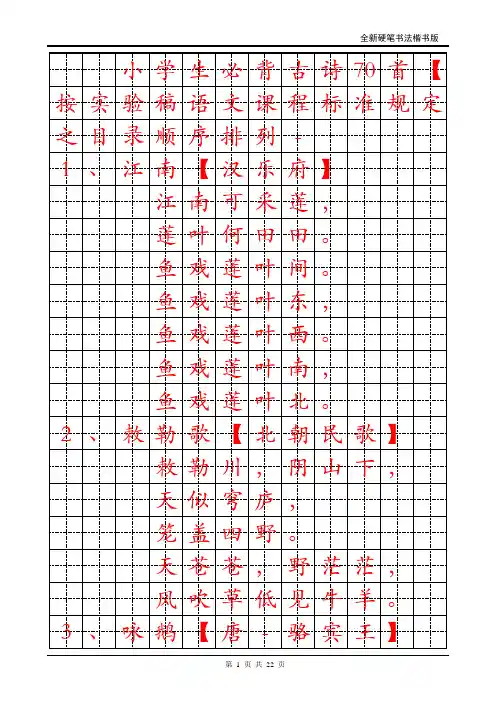 全新硬笔书法楷书版
小学生必背古诗70首【
按实验稿语文课程标准规定
之目录顺序排列-
1、江南【汉乐府】
江南可采莲，
莲叶何田田。
鱼戏莲叶间。
鱼戏莲叶东，
鱼戏莲叶。
鱼戏莲叶南，
鱼戏莲叶北。
2、敕勒歌【北朝民歌】
敕勒川，阴山下，
天似穹庐，
笼盖四野。
天苍苍，野茫茫，
风吹草低见牛羊。
3、咏鹅【唐-骆宾王】
第 1 页 共 22 页